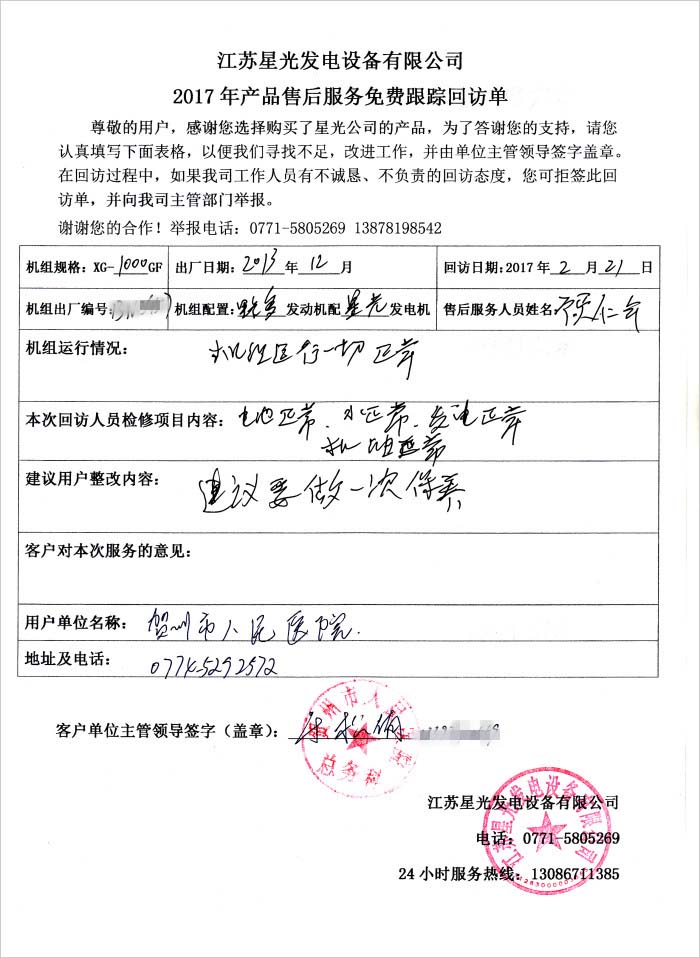 江苏星光发电设备有限公司
2017年产品售后服务免费跟踪回访单
尊敬的用户，感谢您选择购买了星光公司的产品，为了答谢您的支持，请您
认真填写下面表格，以便我们寻找不足，改进工作，并由单位主管领导签字盖章。
在回访过程中，如果我司工作人员有不诚恳、不负责的回访态度，您可拒签此回
访单，并向我司主管部门举报。
谢谢您的合作！举报电话：0771-5805269 13878198542
机组规格：XG-1000GF 出厂日期：2013年12月 回访日期：2017年2月21日
机组出厂编号： 机组配置： 发动机配星光发电机 售后服务人员姓名：
机组运行情况： 机组运行一切正常
本次回访人员检修项目内容： 电池正常、水正常、发电正常
机油正常
建议用户整改内容： 建议要做一次保养
客户对本次服务的意见：
用户单位名称： 贺州市人民医院.
地址及电话： 0774-5292572
客户单位主管领导签字（盖章）：
贺州市人民医院
总务科
江苏星光发电设备有限公司
电话：0771-5805269
24小时服务热线：13086711385
江苏星光发电设备有限公司